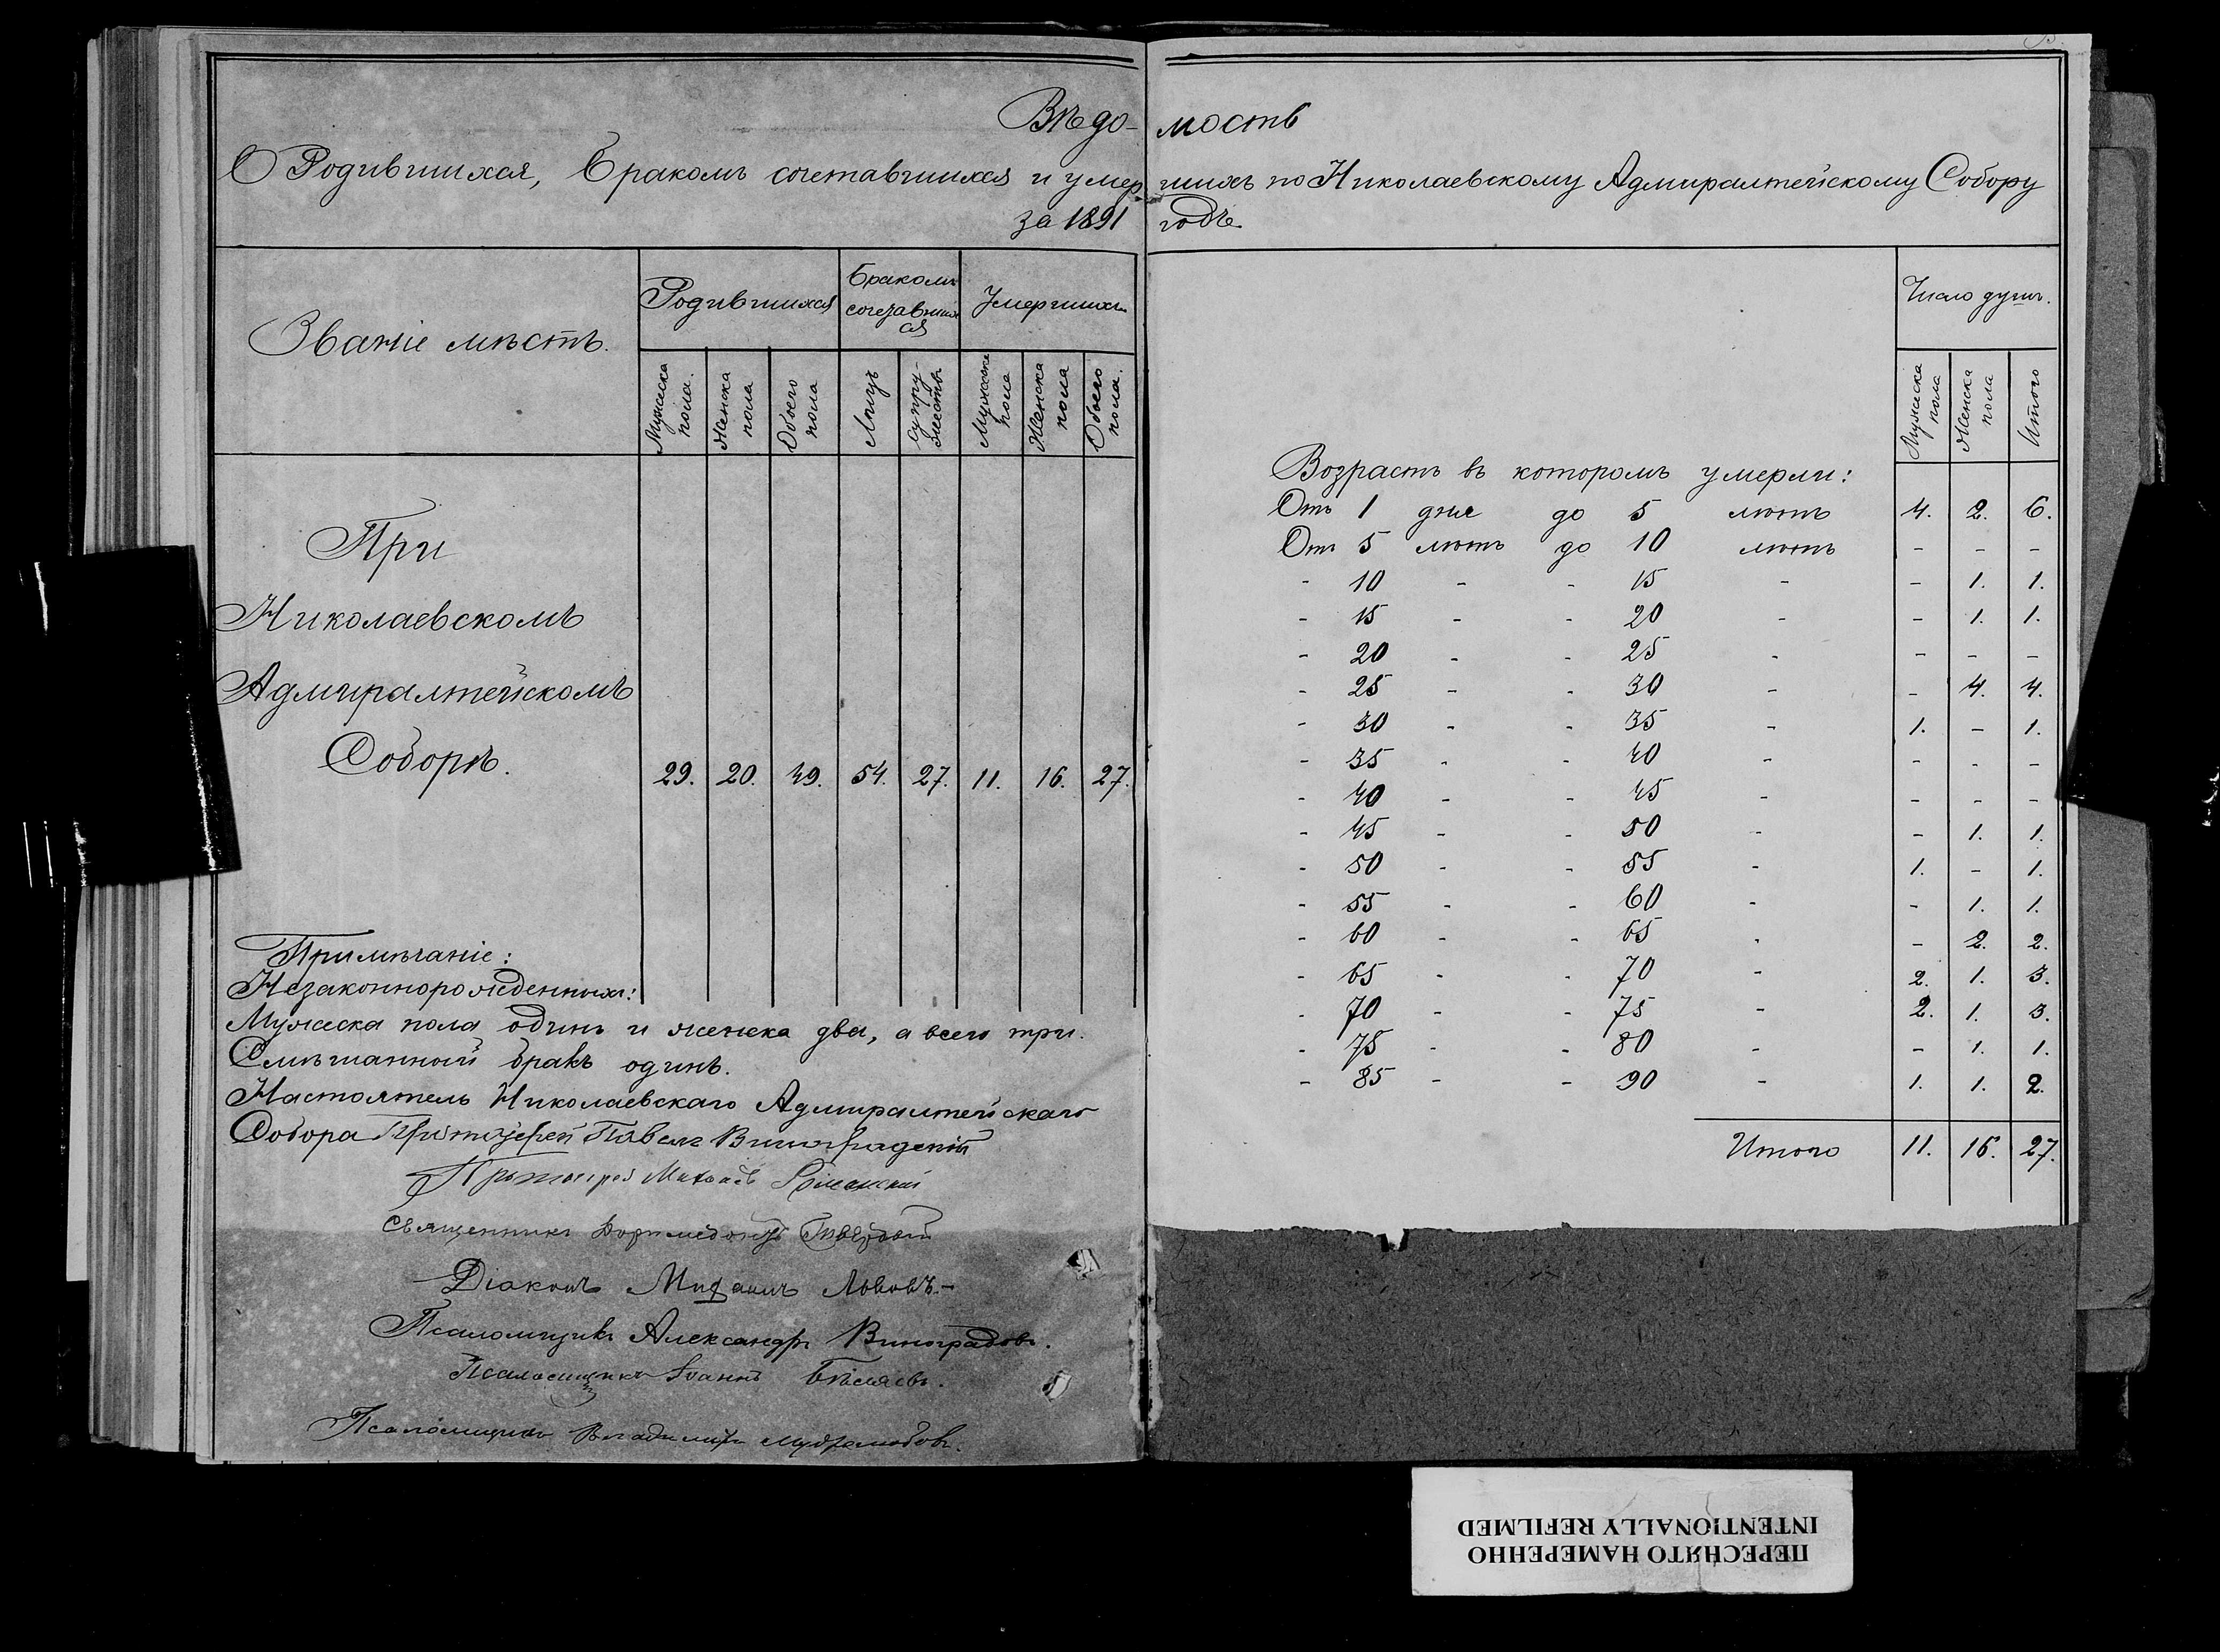 Вѣдо-мость
О Родившихся, бракомъ сочетавшихся и умершихъ по Николаевскому Адмиралтейскому Собору
за 1891 годъ
Званіе мѣстъ.
Родившихся
Бракомъ сочетавшихся
Умершихъ
Мужеска пола.
Женска пола
Обоего пола
Лицъ
Супружествъ
Мужеска пола
Женска пола
Обоего пола.
При
Николаевскомъ
Адмиралтейскомъ
Соборѣ.
29. 20. 49. 54. 27. 11. 16. 27.
Примѣчаніе:
Незаконнорожденныхъ:
Мужеска пола одинъ и женска два, а всего три.
Смѣшанный бракъ одинъ.
Настоятель Николаевскаго Адмиралтейскаго
Собора Протоіерей Павелъ Виноградскій
Протоіерей
Священникъ
Діаконъ Михаилъ Львовъ.-
Псаломщикъ Александръ Виноградовъ.
Псаломщикъ Іоаннъ Бѣляевъ.
Псаломщикъ Владиміръ
Число душъ.
Мужеска пола
Женска пола
Итого
Возрастъ въ которомъ умерли:
Отъ 1 дня до 5 лѣтъ 4. 2. 6.
Отъ 5 лѣтъ до 10 лѣтъ - - -
- 10 - - 15 - - 1. 1.
- 15 - - 20 - - 1. 1.
- 20 - - 25 - - - -
- 25 - - 30 - - 4. 4.
- 30 - - 35 - 1. - 1.
- 35 - - 40 - - - -
- 40 - - 45 - - - -
- 45 - - 50 - - 1. 1.
- 50 - - 55 - 1. - 1.
- 55 - - 60 - - 1. 1.
- 60 - - 65 - - 2. 2.
- 65 - - 70 - 2. 1. 3.
- 70 - - 75 - 2. 1. 3.
- 75 - - 80 - - 1. 1.
- 85 - - 90 - 1. 1. 2.
Итого 11. 16. 27.
ПЕРЕСНЯТО НАМЕРЕННО
INTENTIONALLY REFILMED